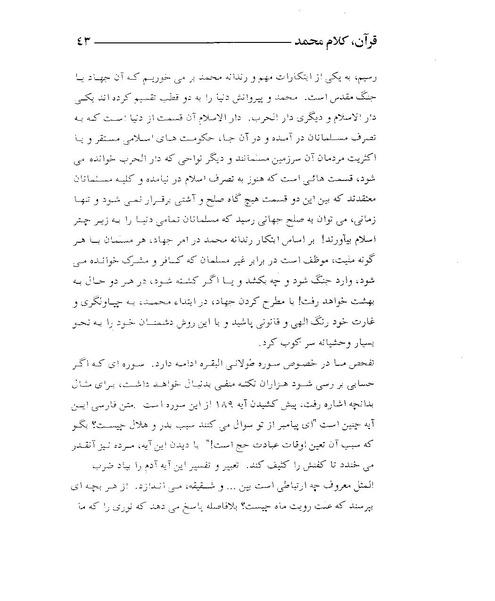 قرآن، کلام محمد ۴۳
رسیم، به یکی از ابتکارات مهم و رندانه محمد بر می خوریم که آن جهاد یا
جنگ مقدس است. محمد و پیروانش دنیا را به دو قطب تقسیم کرده اند یکی
دار الاسلام و دیگری دار الحرب. دار الاسلام آن قسمت از دنیا است که به
تصرف مسلمانان در آمده و در آن جا، حکومت های اسلامی مستقر و یا
اکثریت مردمان آن سرزمین مسلمانند و دیگر نواحی که دار الحرب خوانده می
شود، قسمت هائی است که هنوز به تصرف اسلام در نیامده و کلیه مسلمانان
معتقدند که بین این دو قسمت هیچ گاه صلح و آشتی برقرار نمی شود و تنها
زمانی، می توان به صلح جهانی رسید که مسلمانان تمامی دنیا را به زیر چتر
اسلام بیآورند! بر اساس ابتکار رندانه محمد در امر جهاد، هر مسلمان با هر
گونه ملیت، موظف است در برابر غیر مسلمان که کافر و مشرک خوانده می
شود، وارد جنگ شود و چه بکشد و یا اگر کشته شود، در هر دو حال به
بهشت خواهد رفت! با مطرح کردن جهاد، در ابتداء محمد، به چپاولگری و
غارت خود رنگ الهی و قانونی پاشید و با این روش دشمنان خود را به نحو
بسیار وحشیانه سر کوب کرد.
تفحص ما در خصوص سوره طولانی البقره ادامه دارد. سوره ای که اگر
حسابی بر رسی شود هزاران نکته منفی بدنبال خواهد داشت، برای مثال
بدانچه اشاره رفت، پیش کشیدن آیه ۱۸۹ از این سوره است. متن فارسی این
آیه چنین است "ای پیامبر از تو سوال می کنند سبب بدر و هلال چیست؟ بگو
که سبب آن تعین اوقات عبادت حج است!" با دیدن این آیه، مرده نیز آنقدر
می خندد تا کفنش را کثیف کند. تعبیر و تفسیر این آیه آدم را بیاد ضرب
المثل معروف چه ارتباطی است بین ... و شقیقه، می اندازد. از هر بچه ای
بپرسند که علت رویت ماه چیست؟ بلافاصله پاسخ می دهد که نوری را که ما